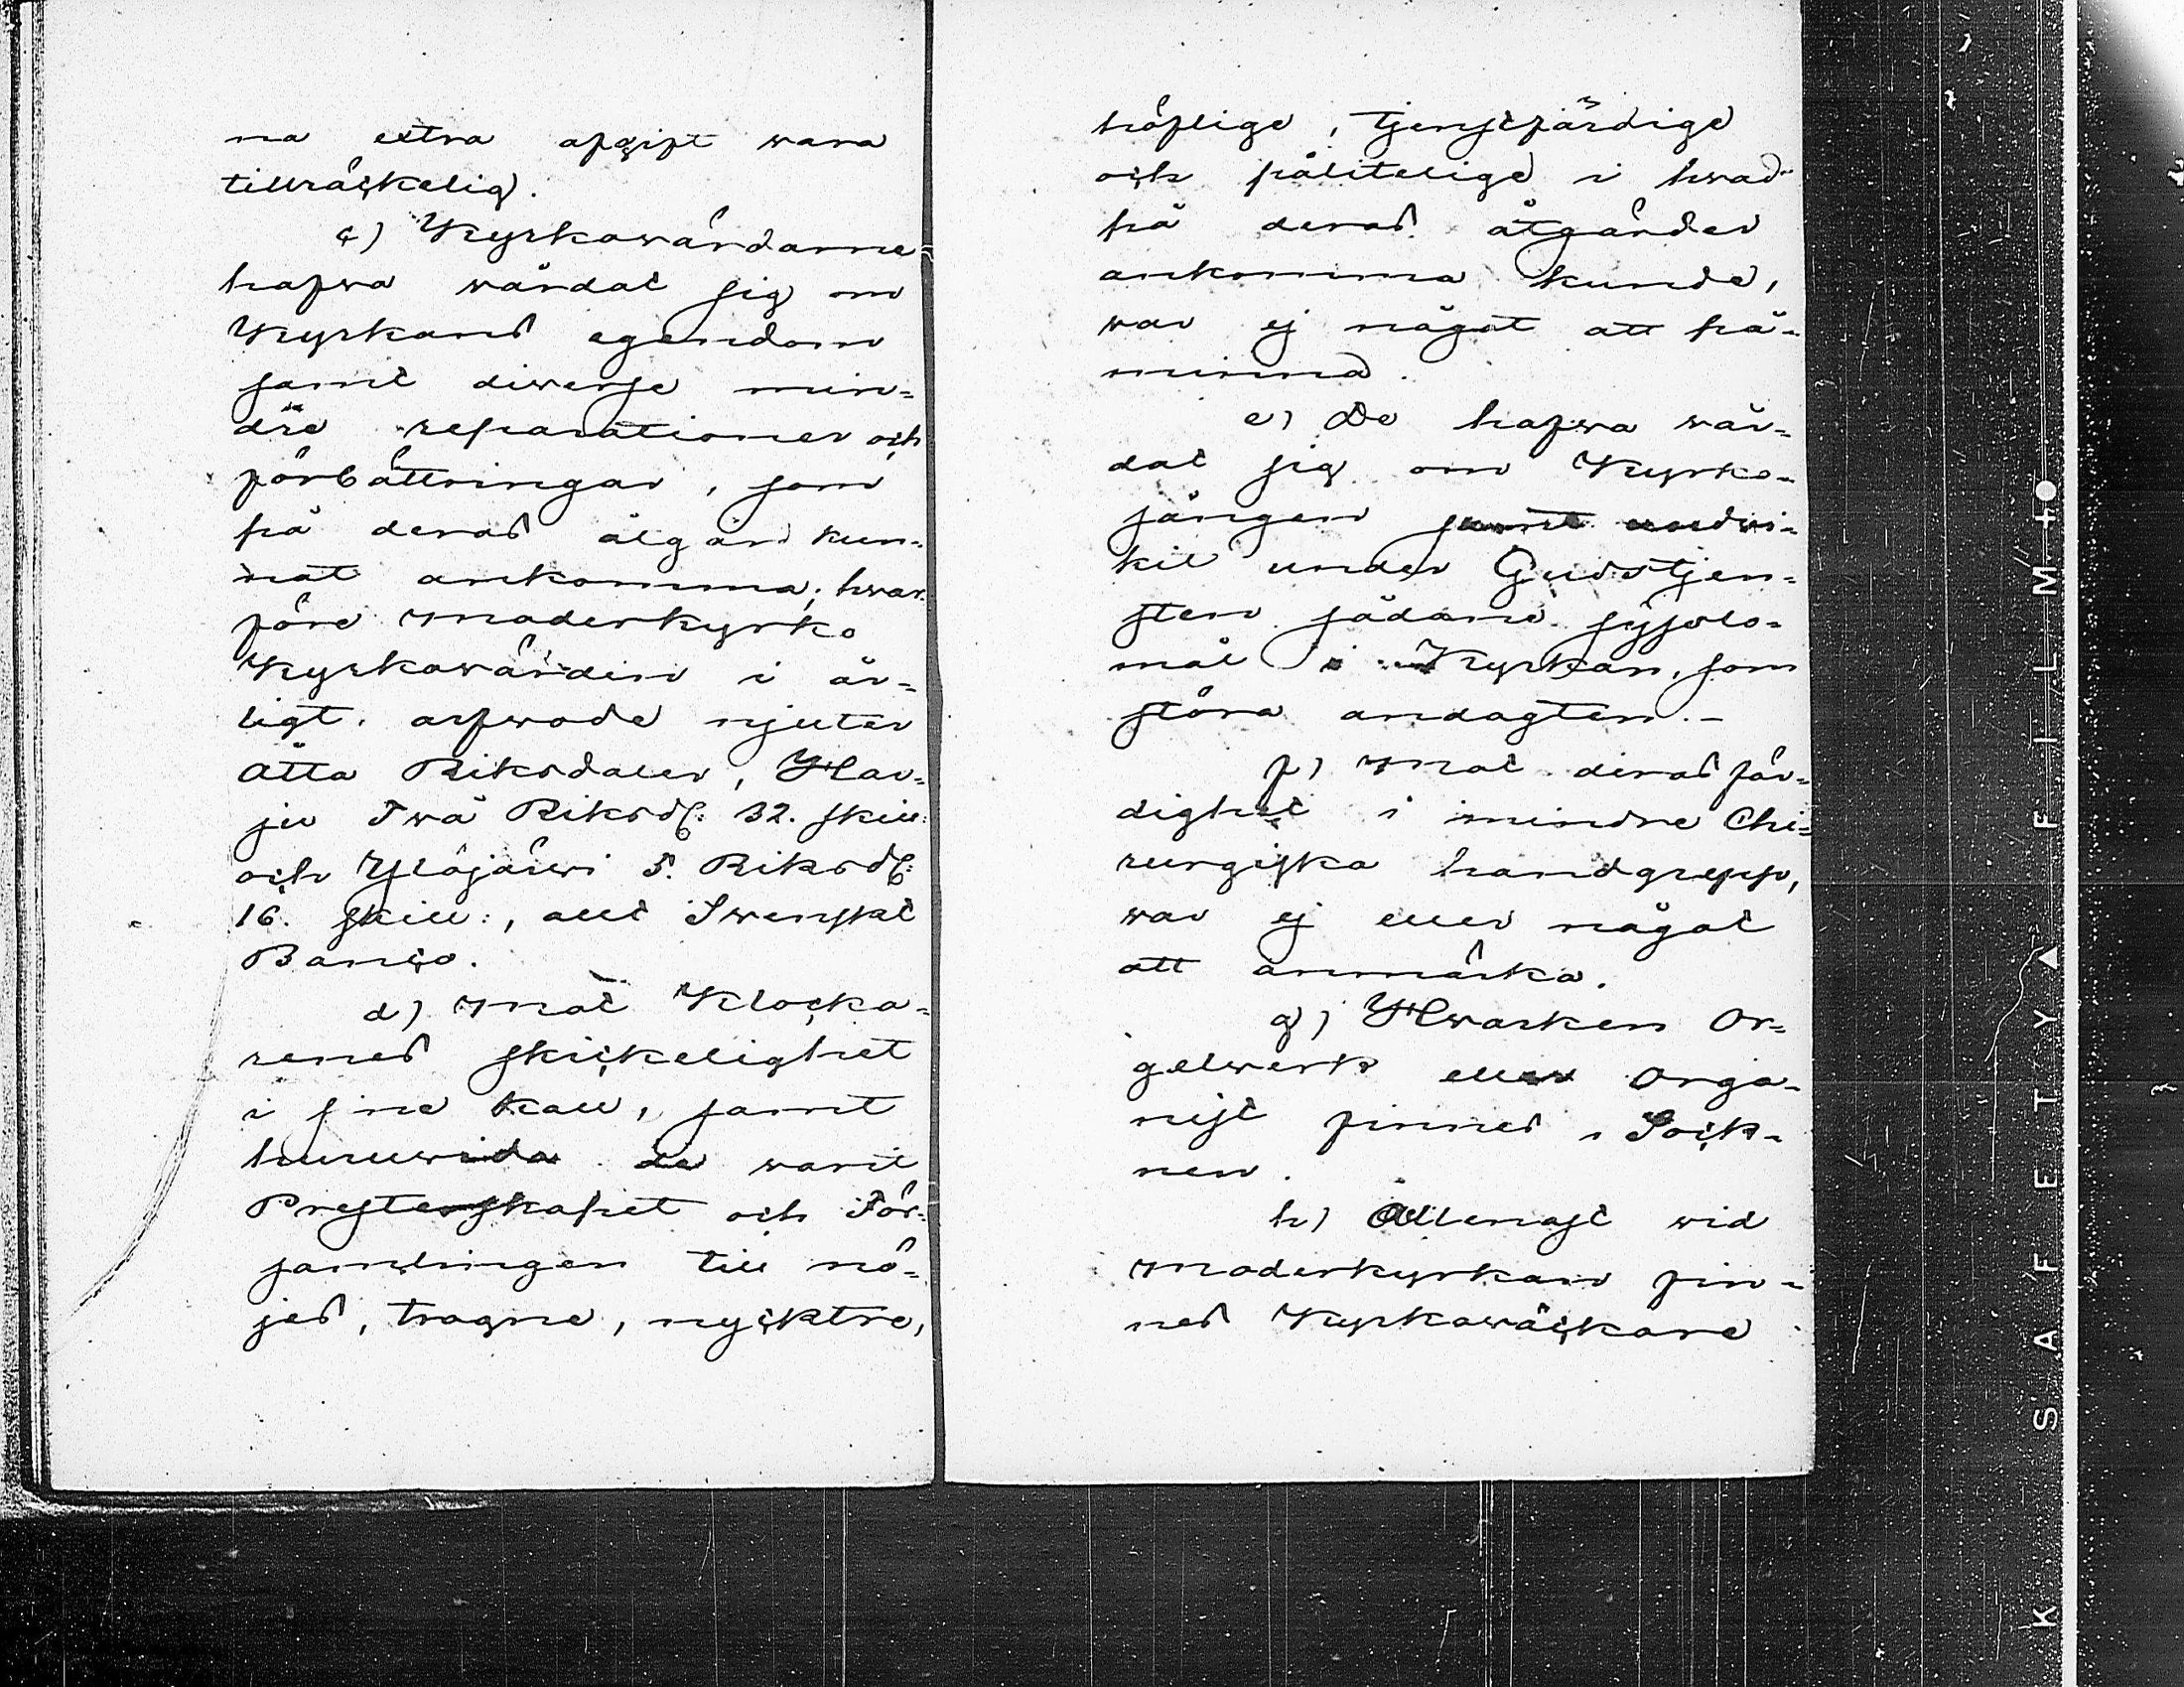 na extra afgift wara
tillräckelig.
c) Kyrkowärdarne
hafwa wårdat sig om
Kyrkans egendom
samt diwerse min=
dre reparationer och
förbättringar, som
på deras åtgärd kun=
nat ankomma; hwar=
före Moderkyrko
Kyrkowärden i år=
ligt arfwode njuter
åtta Riksdaler, Har=
ju Twå Riksd: 32. skill:
och Ylöjärwi 5. Riksd:
16. skill:, allt Swenskt
Banco.
d) Mot Klocka=
renes skickelighet
i sine kall, samt
huruwida de warit
Presterskapet och För=
samlingen till nö=
jes, trogne, nycktre,
höflige, tjenstfärdige
och pålitelige i hwad
på deras åtgärder
ankomma kunde,
war ej något att på=
minna.
e) De hafwa wår=
dat sig om Kyrko=
sången samt undwi=
kit under Gudstjen=
sten sådane sysslo=
mål i Kyrkan, som
störa andagten.-
f) Mot deras fär=
dighet i mindre Chi=
rurgiska handgrepp,
war ej eller något
att anmärka.
g) Hwarken Or=
gelwerk eller Orga=
nist finnes i Sock=
nen.
h) Allenast wid
Moderkyrkan fin=
nes Kyrkowäckare
K SAFETY ▲ FILM +●